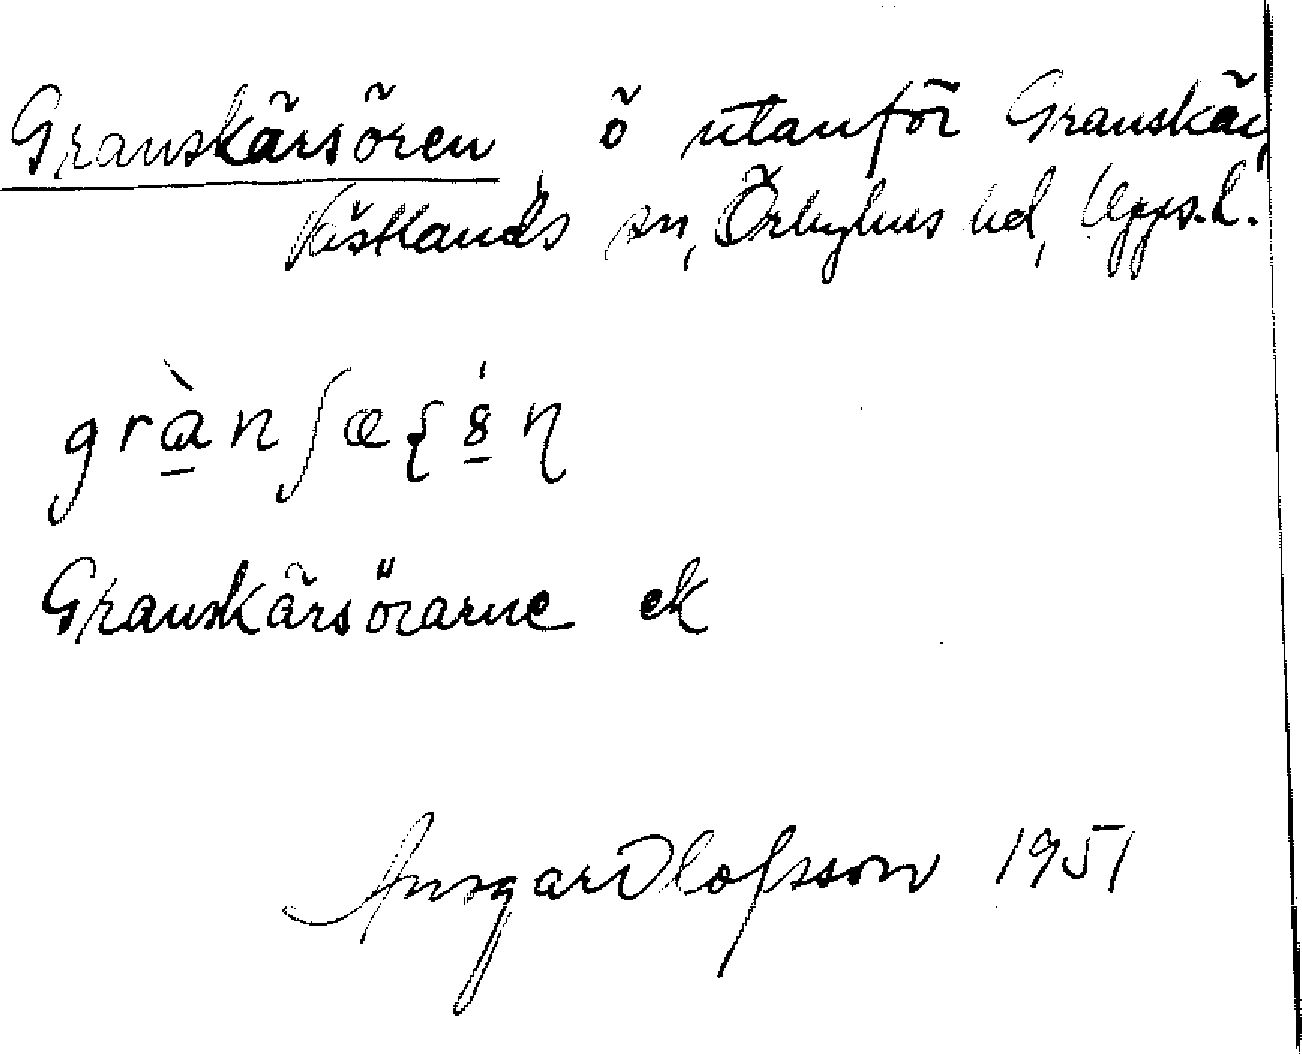 Granskärsören ö utanför Granskär,
Västlands sn, Örbyhus hd, Upps. l.
Granskärsörarne ek
Ansgar Olofsson 1951